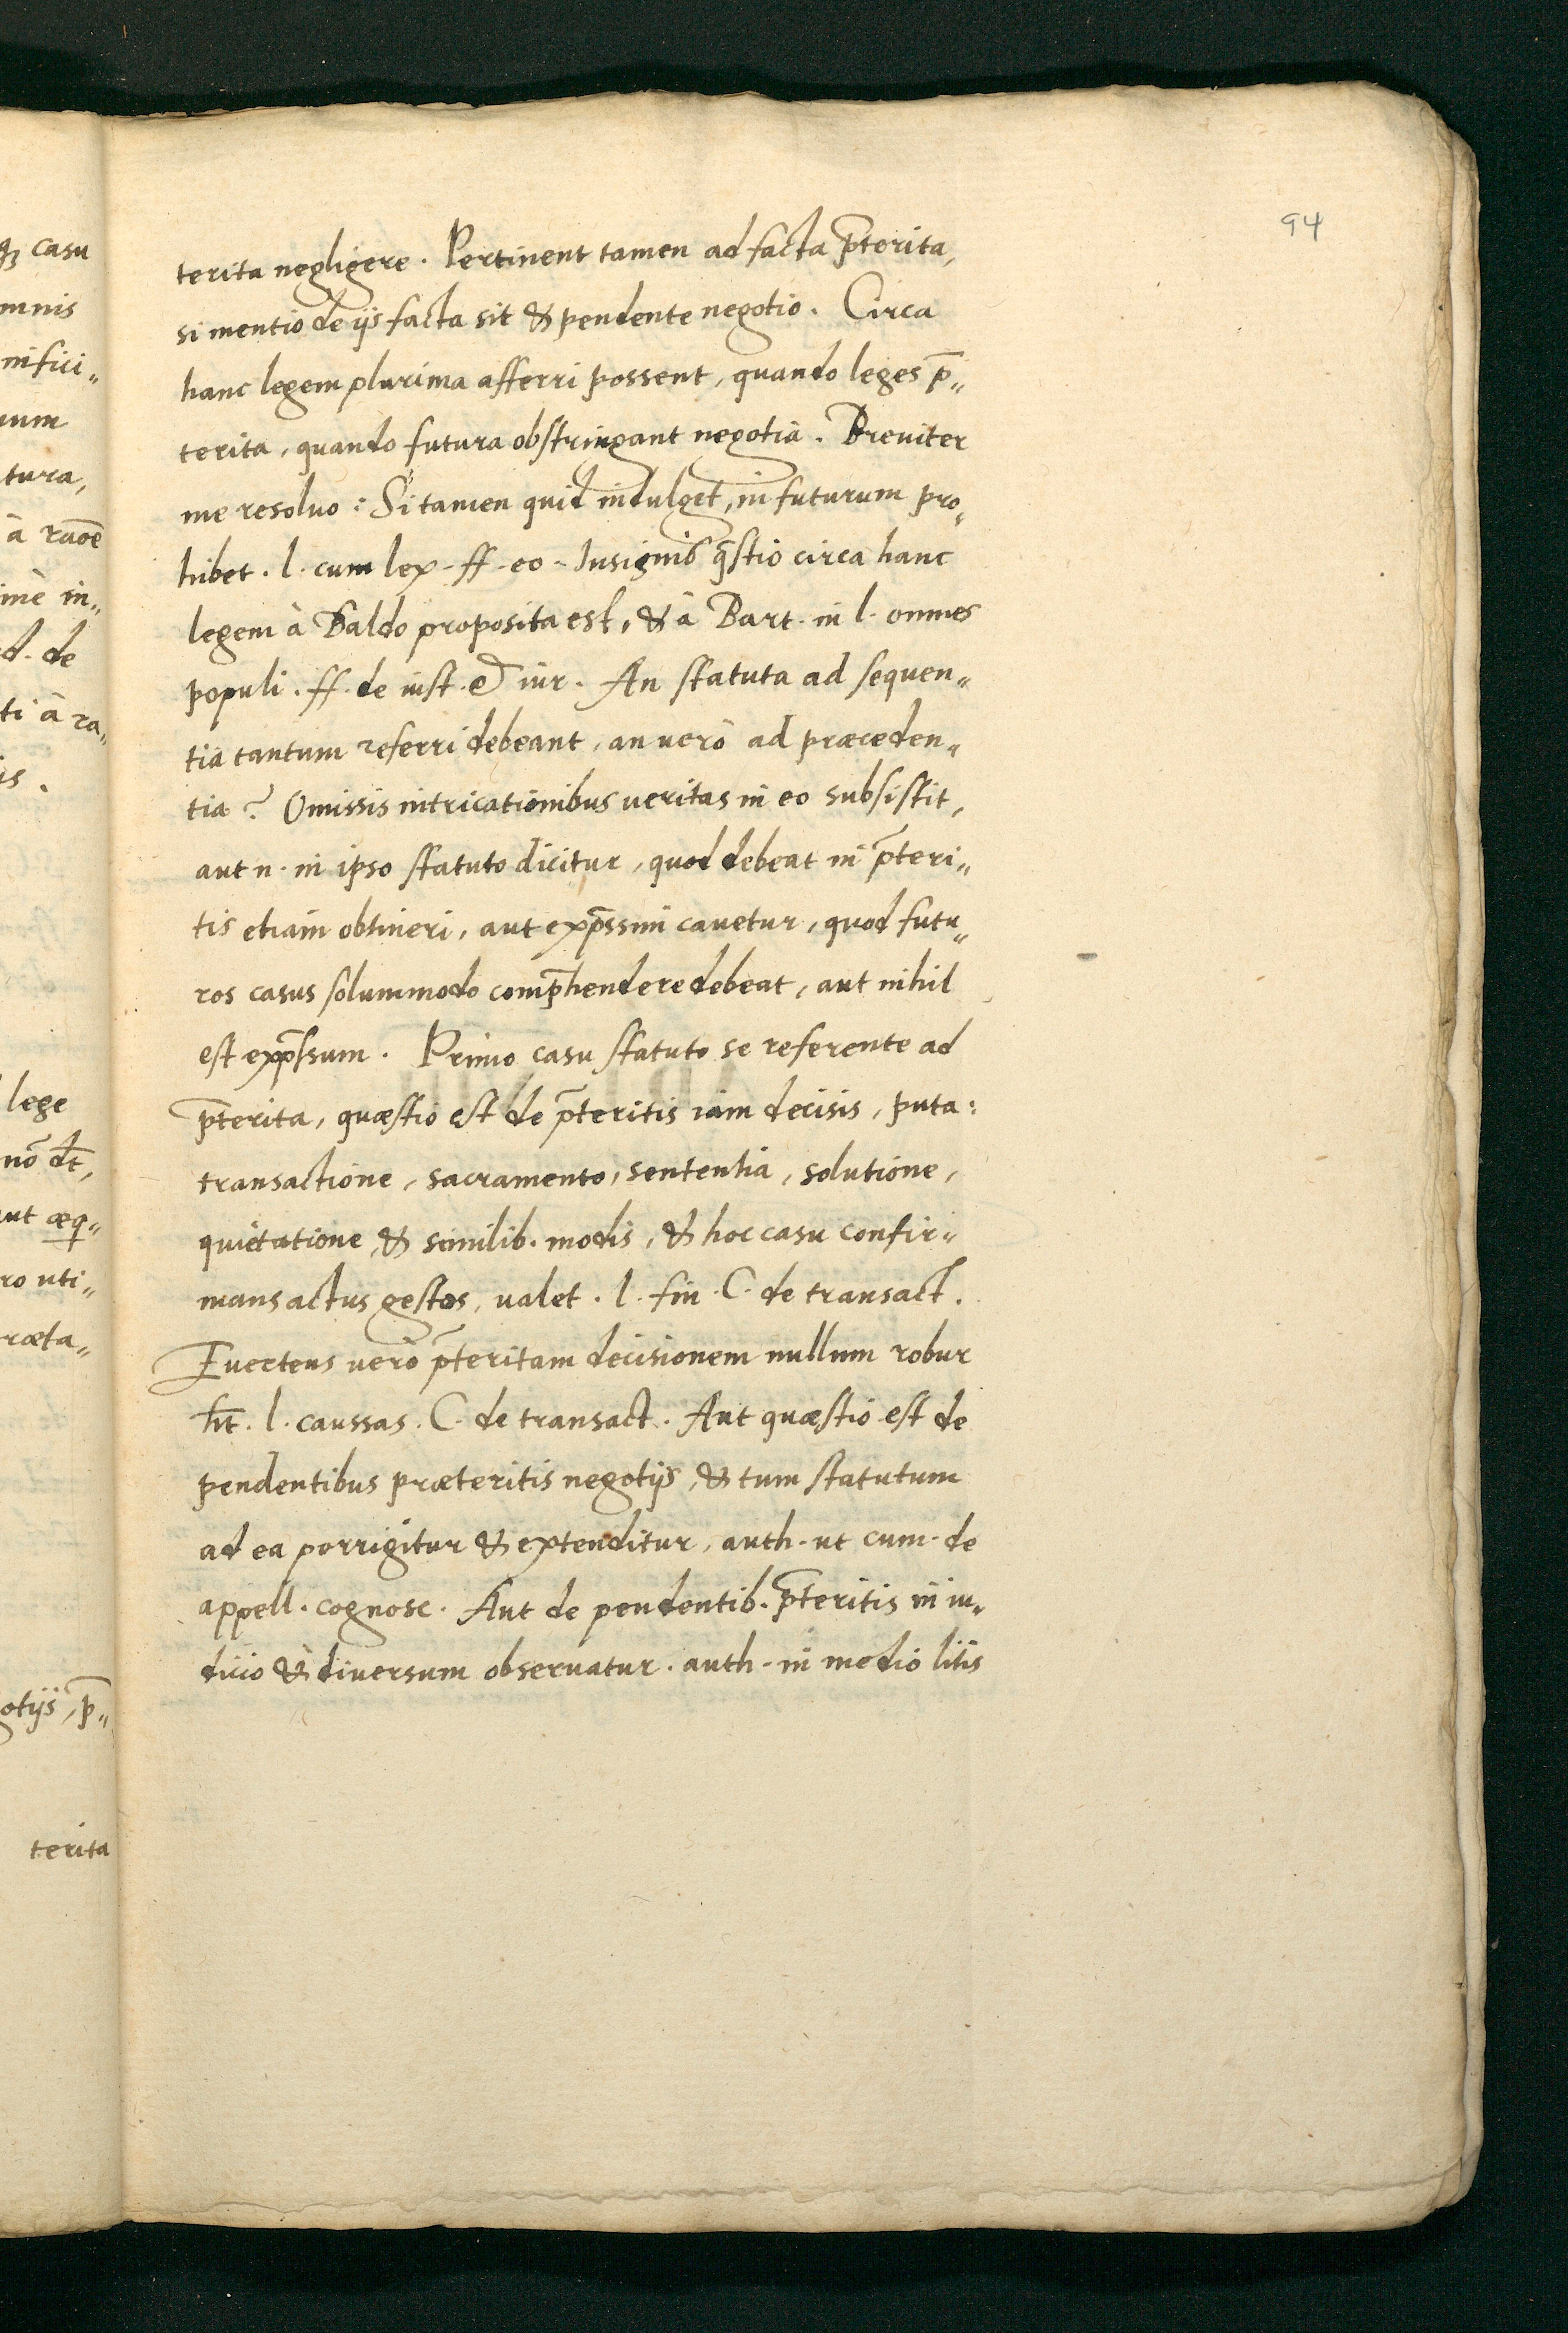 94
terita negligere. Pertinent tamen ad facta p̄terita,
si mentio de ijs facta sit & pendente negotio. Circa
hanc legem plurima afferri possent, quando leges p̄„
terita, quando futura obstringant negotia. Breuiter
me resoluo: Si tamen quid indulget, in futurum pro„
hibet. l. cum lex. ff. eo. Insignis q̄stio circa hanc
legem à Baldo proposita est, & à Bart. in l. omnes
populi. ff. de iust. & iur. An statuta ad sequen„
tia tantum referri debeant, an uerò ad præceden„
tia? Omissis intricationibus ueritas in eo subsistit,
aut n. in ipso statuto dicitur, quod debeat in p̄teri„
tis etiam obtineri, aut exp̄ssim cauetur, quod futu„
ros casus solummodo comp̄hendere debeat, aut nihil
est exp̄ssum. Primo casu statuto se referente ad
p̄terita, quæstio est de p̄teritis iam decisis, puta:
transactione, sacramento, sententia, solutione,
quietatione & similib. modis, & hoc casu confir„
mans actus gestos, ualet. l. fin. C. de transact.
Euertens uerò p̄teritam decisionem nullum robur
h̄t. l. caussas. C. de transact. Aut quæstio est de
pendentibus præteritis negotijs, & tum statutum
ad ea porrigitur & extenditur, auth. ut cum. de
appell. cognosc. Aut de pendentib. p̄teritis in iu„
dicio & diuersum obseruatur. auth. in medio litis
casu
mnis
nifici„
tura,
à raōe
in„
d. de
ti à ra„
is.
lege
nō dt̄,
ut æq„
ro uti„
ræta„
otijs, p̄„
terita